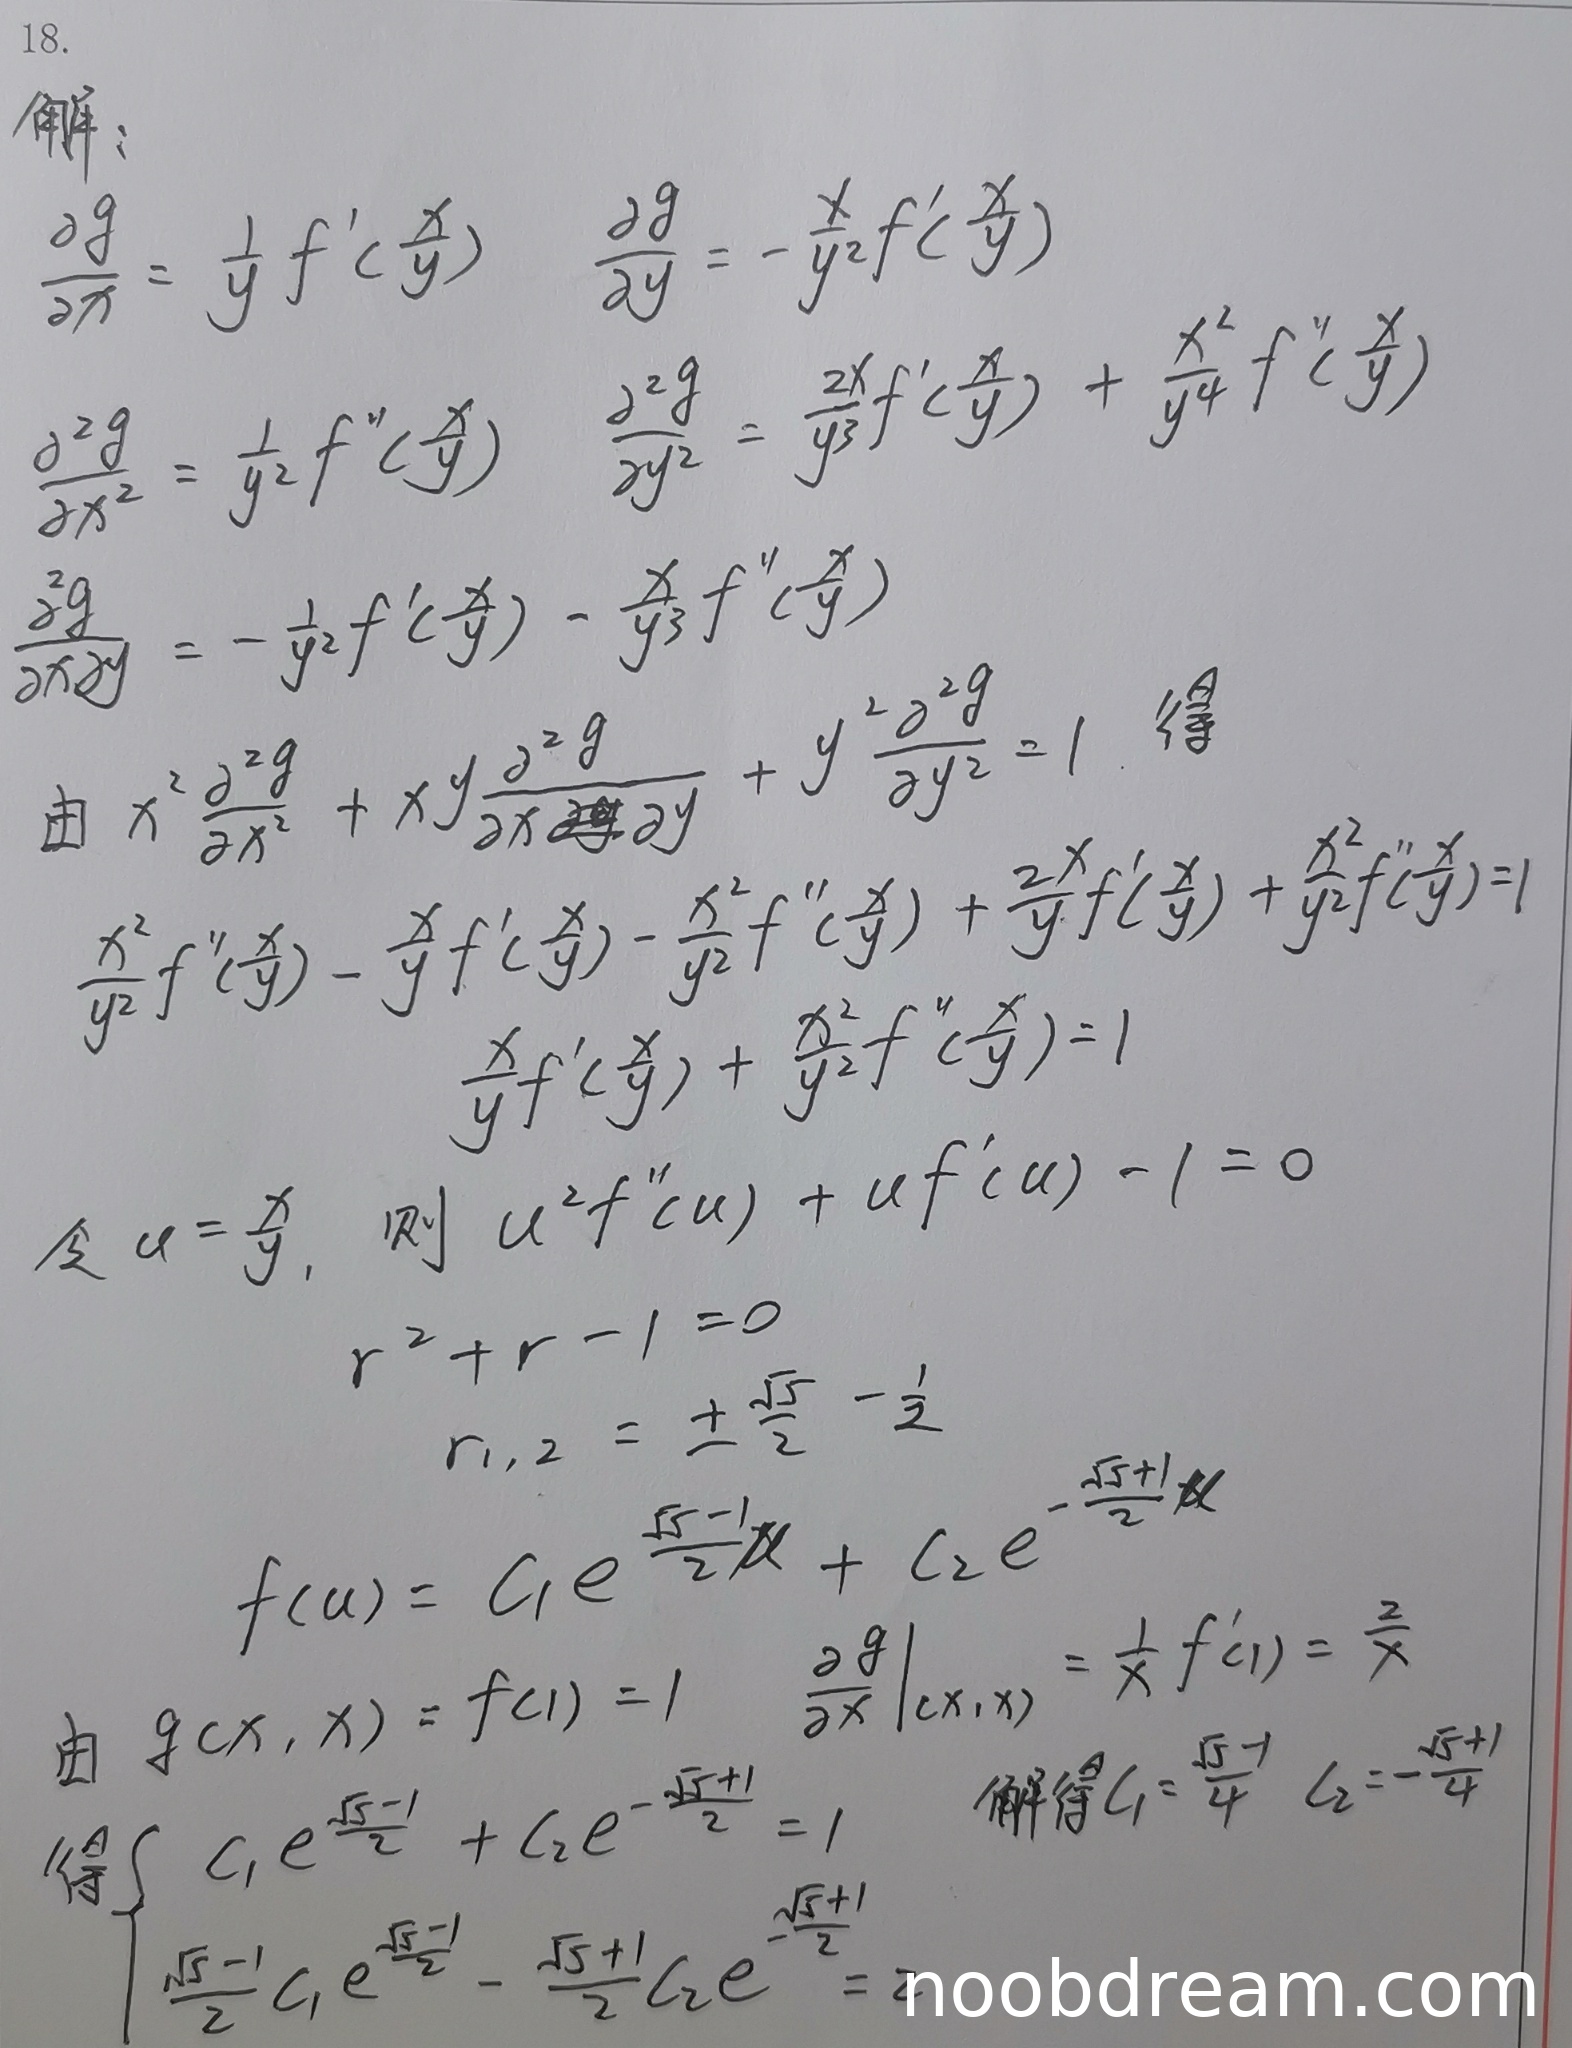 18.
解:
∂g/∂x = 1/y f'(x/y)   ∂g/∂y = -x/y² f'(x/y)
∂²g/∂x² = 1/y² f''(x/y)   ∂²g/∂y² = 2x/y³ f'(x/y) + x²/y⁴ f''(x/y)
∂²g/∂x∂y = -1/y² f'(x/y) - x/y³ f''(x/y)
由 x² ∂²g/∂x² + xy ∂²g/∂x∂y + y² ∂²g/∂y² = 1 得
x²/y² f''(x/y) - x/y f'(x/y) - x²/y² f''(x/y) + 2x/y f'(x/y) + x²/y² f''(x/y) = 1
x/y f'(x/y) + x²/y² f''(x/y) = 1
令 u = x/y, 则 u² f''(u) + u f'(u) - 1 = 0
r² + r - 1 = 0
r₁,₂ = ± √5/2 - 1/2
f(u) = C₁ e^((√5-1)/2 u) + C₂ e^(-(√5+1)/2 u)
由 g(x,x) = f(1) = 1   ∂g/∂x |(x,x) = 1/x f'(1) = 2/x
得 { C₁ e^((√5-1)/2) + C₂ e^(-(√5+1)/2) = 1   解得 C₁ = (√5-1)/4   C₂ = -(√5+1)/4
(√5-1)/2 C₁ e^((√5-1)/2) - (√5+1)/2 C₂ e^(-(√5+1)/2) = 2
noobdream.com